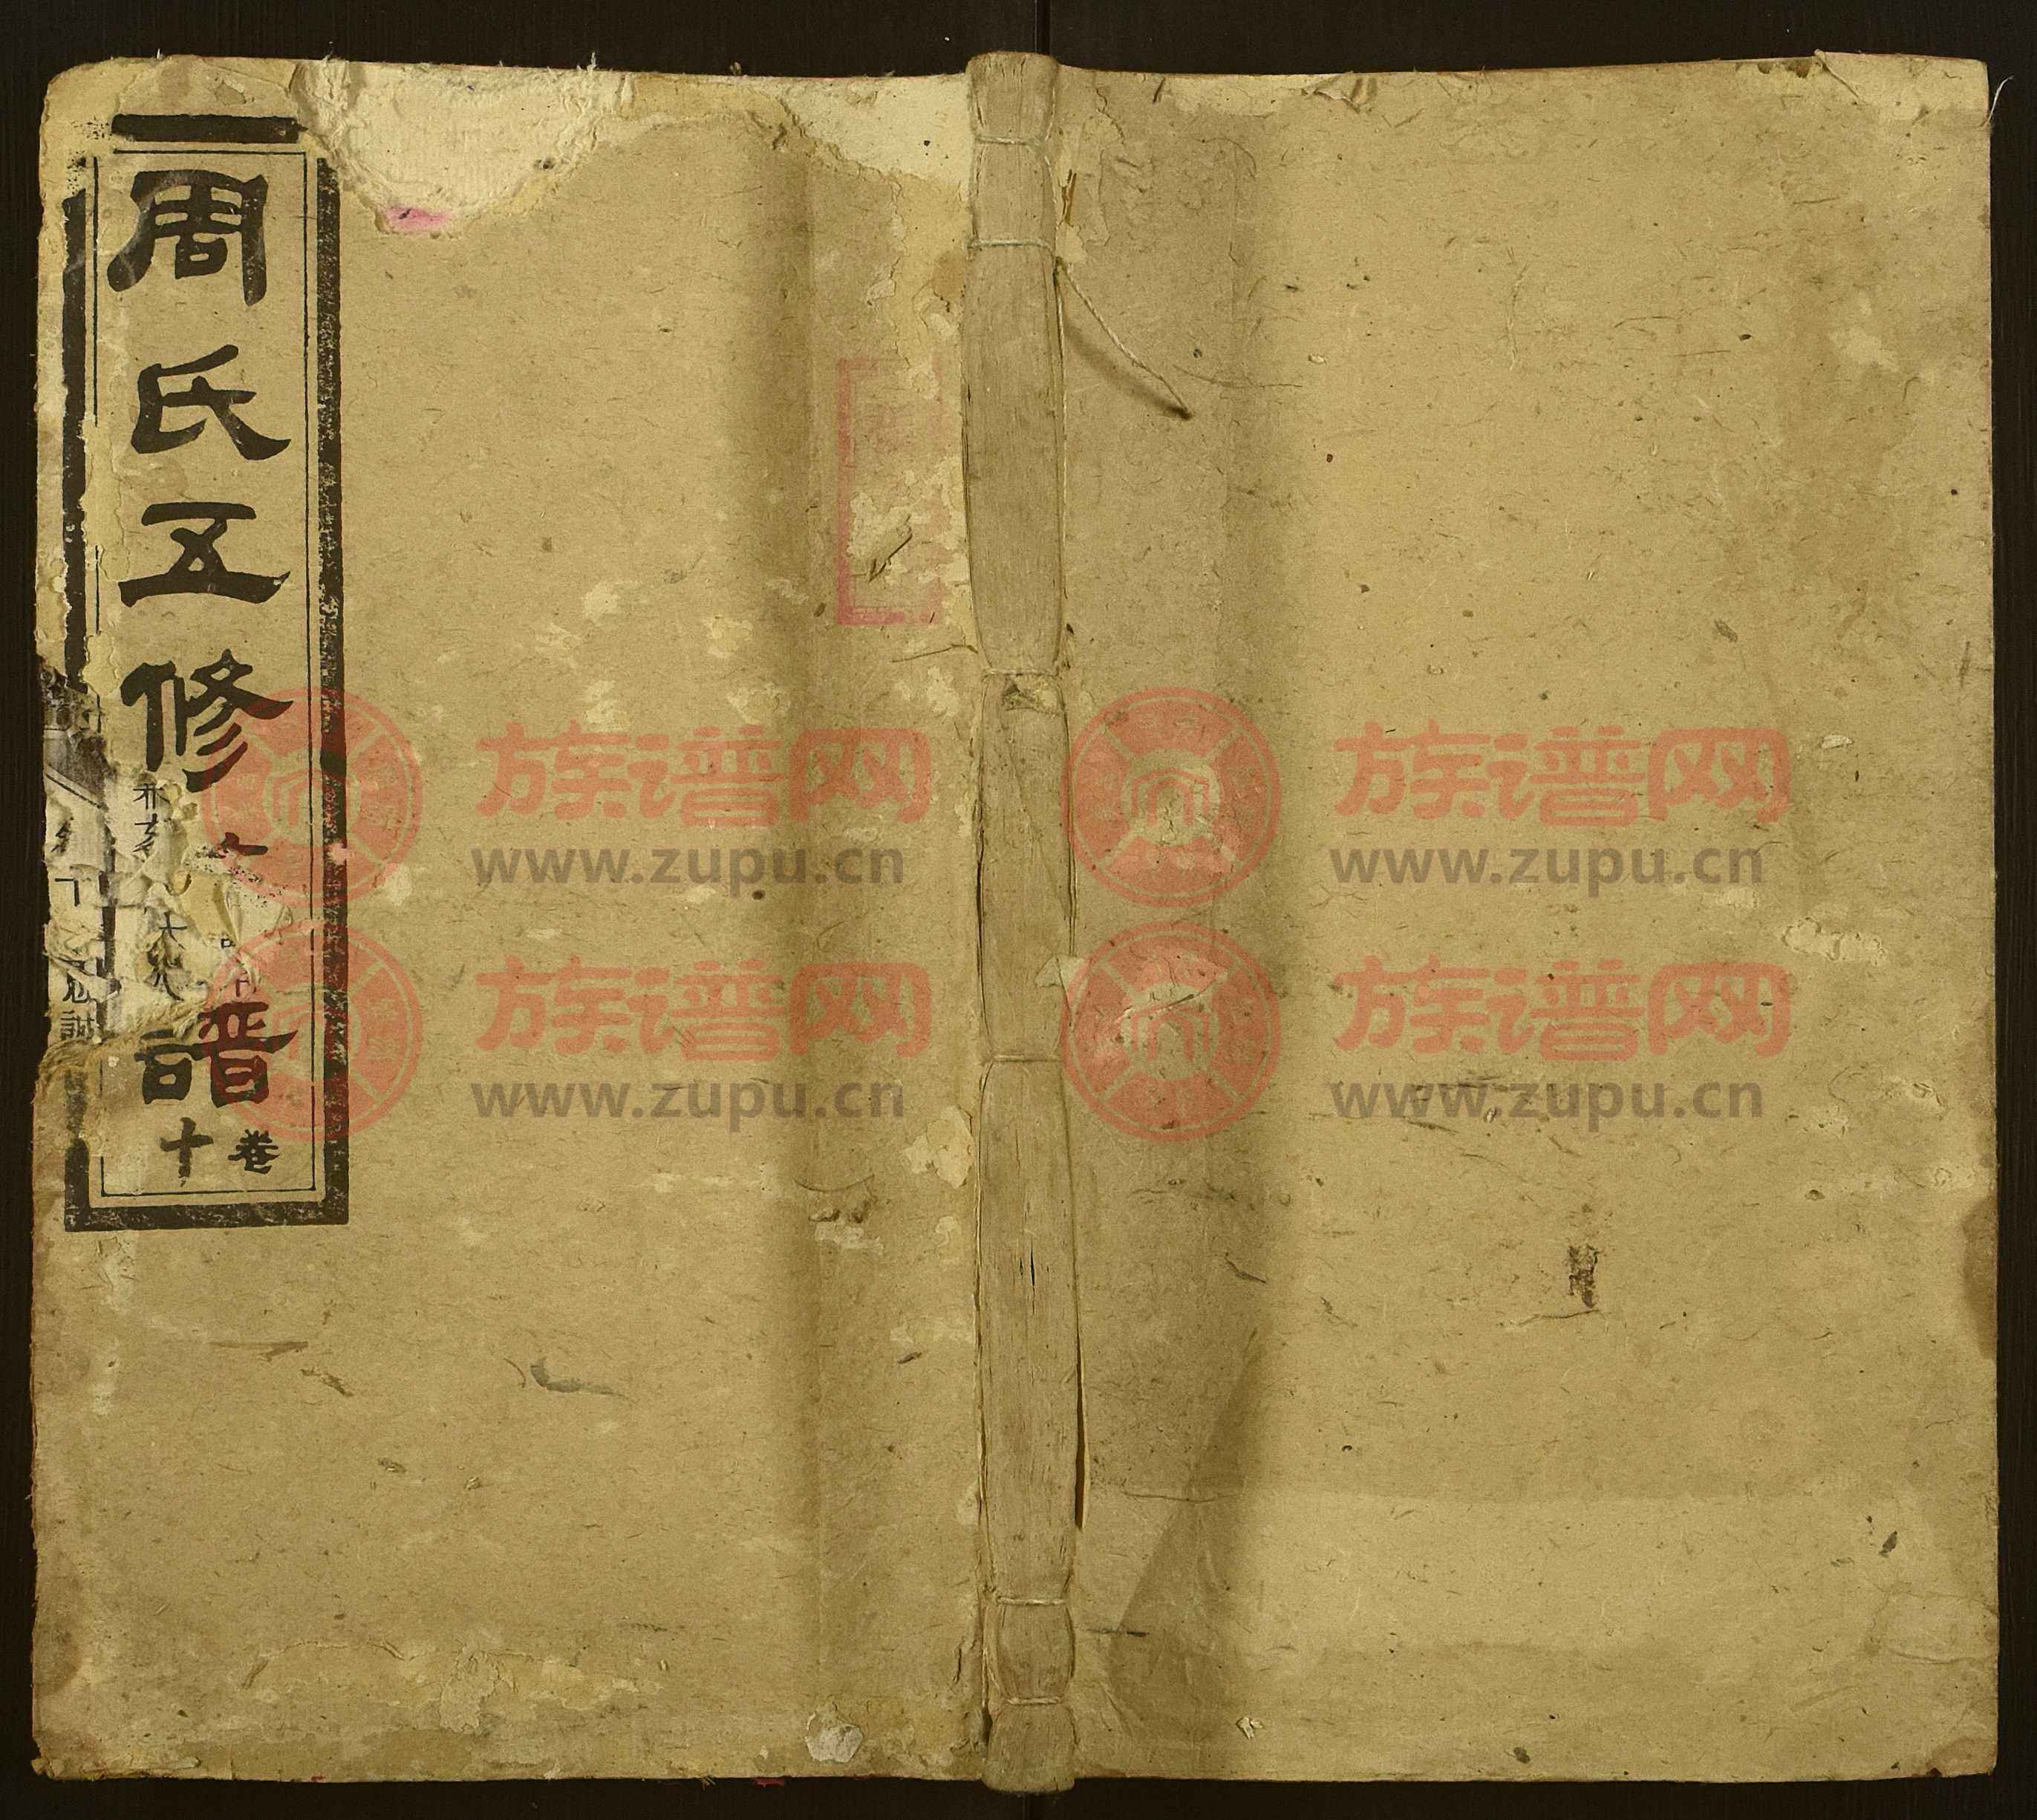 周氏五修
譜
卷
十
族谱网
www.zupu.cn
族谱网
www.zupu.cn
族谱网
www.zupu.cn
族谱网
www.zupu.cn